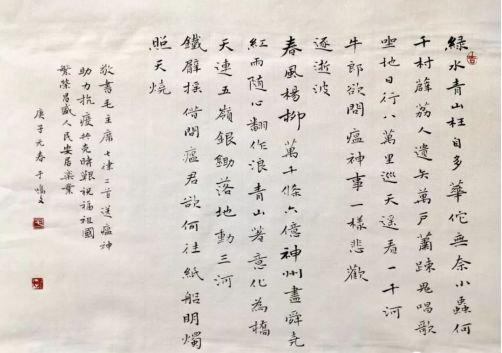 綠水青山枉自多華佗無奈小蟲何
千村薜荔人遺矢萬戶蕭疎鬼唱歌
坐地日行八萬里巡天遙看一千河
牛郎欲問瘟神事一樣悲歡
逐逝波
春風楊柳萬千條六億神州盡舜堯
紅雨隨心翻作浪青山著意化為橋
天連五嶺銀鋤落地動三河
鐵臂搖借問瘟君欲何往紙船明燭
照天燒
敬書毛主席七律二首送瘟神
助力抗疫共克時艱祝福祖國
繁榮昌盛人民安居樂業
庚子元春于